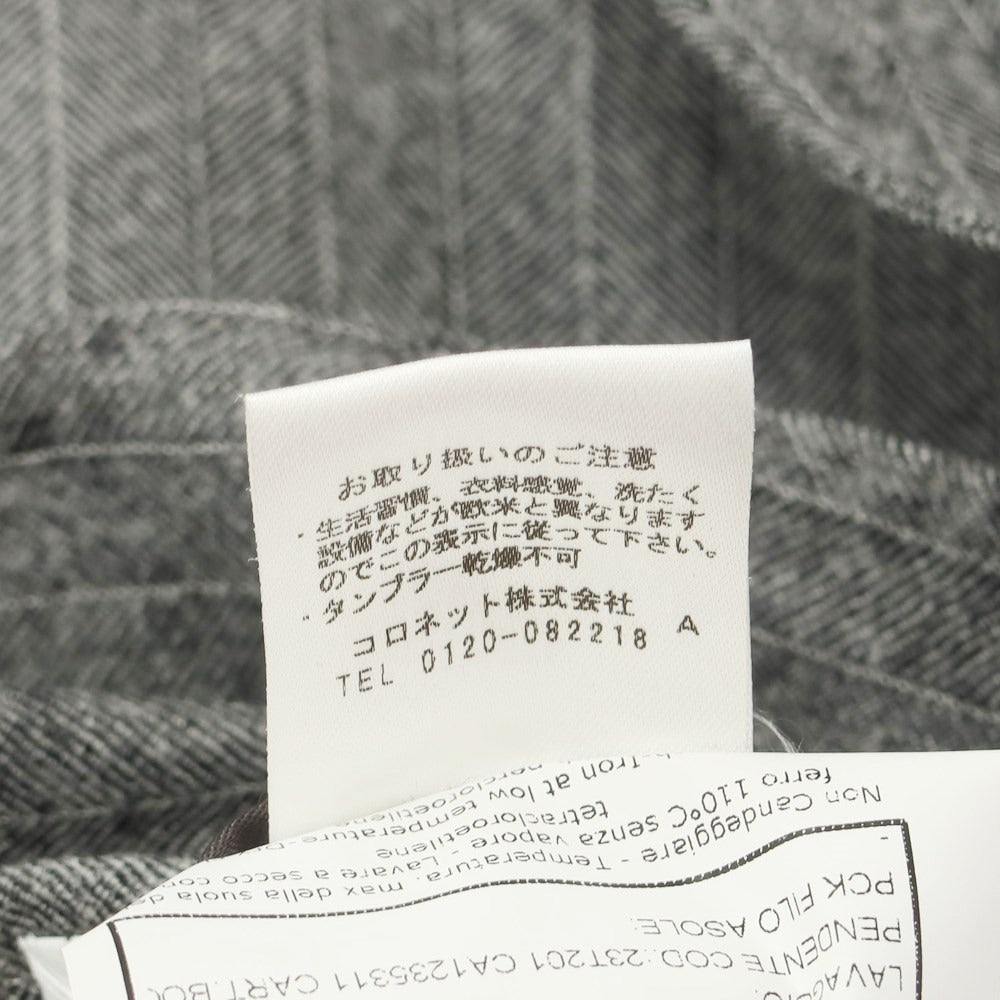 お取り扱いのご注意
・生活習慣、衣料感覚、洗たく
設備などが欧米と異なります
のでこの表示に従って下さい。
・タンブラー乾燥不可
コロネット株式会社
TEL 0120-082218 A
LAVAGGIO
PENDENTE COD.:23T201 CA1235311 CART.BOC
PCK FILO ASOLE:
-
Non Candeggiare - Temperatura. max della suola de
ferro 110°C senza vapore. Lavare a secco con
tetracloroetilene
-Iron at low temperature